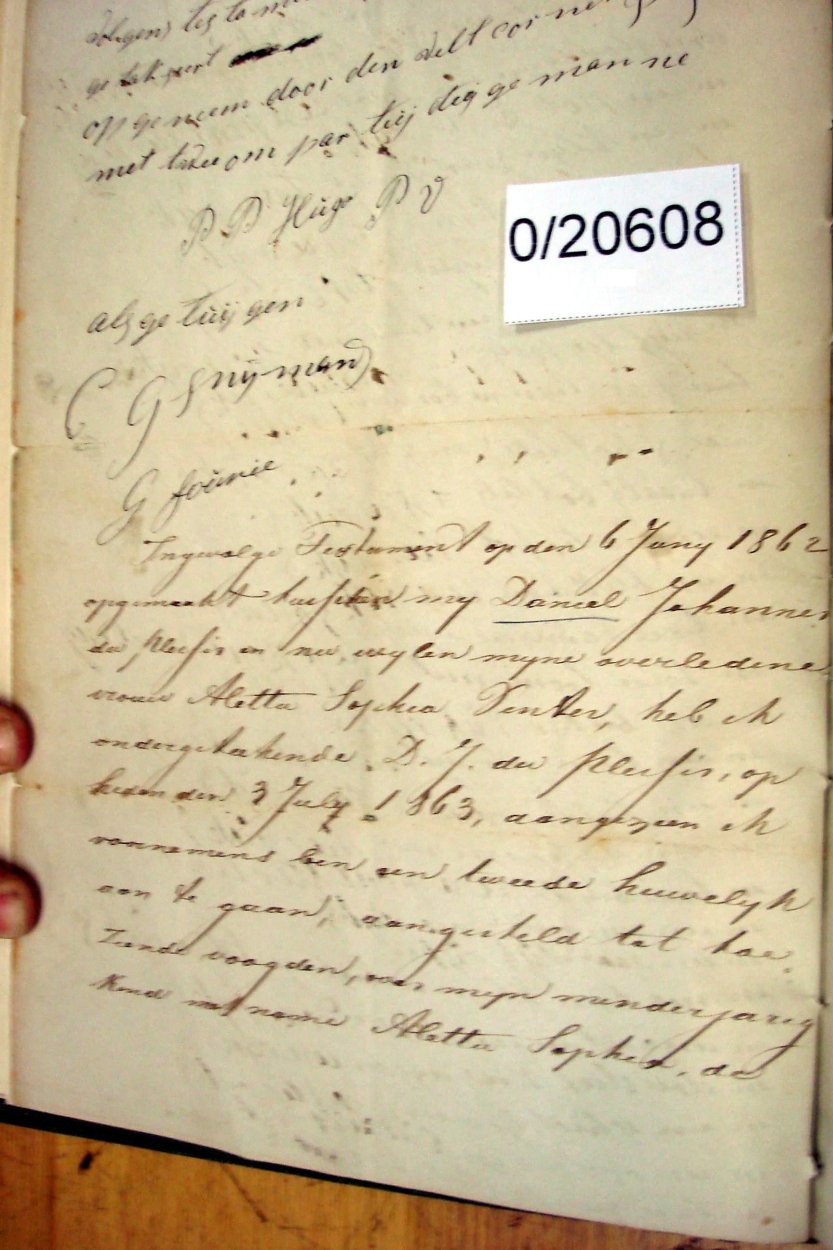 volgens testament
getakseert
opgeneem door den velt cornet
met twee om partuij degge manne
P P Hugo P V
0/20608
als getuijgen
C G Snijman
G fourie
Ingevolge Testament op den 6 Juny 1862
opgemaakt tusschen my Daniel Johannes
du Plessis en nu wylen myne overledene
vrouw Aletta Sophia Venter, heb ik
ondergetekende D. J. du Plessis, op
heden den 3 July 1863, aangezien ik
voornemens ben een tweede huwelyk
aan te gaan, aangesteld tot toe-
ziende voogden, over myn minderjarig
Kind met name Aletta Sophia, de